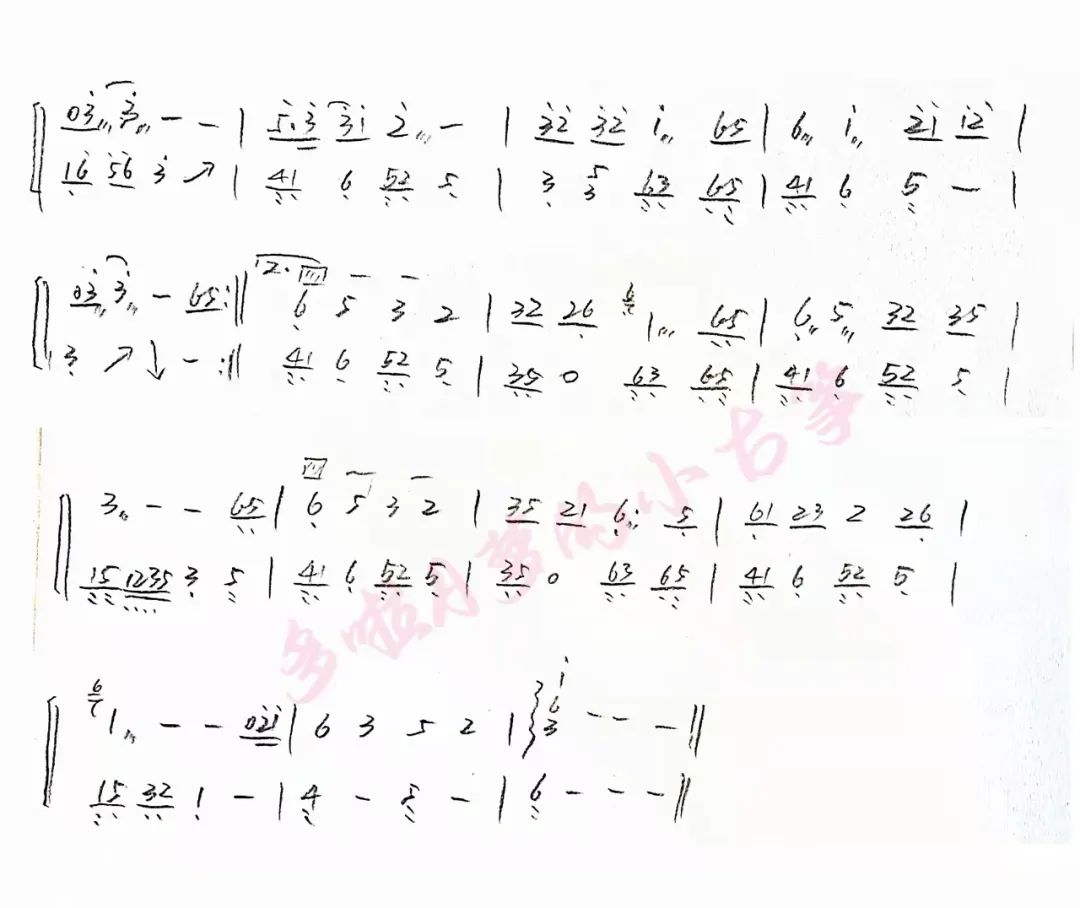 03 3 - - | 5.3 31 2 - | 32 32 1 65 | 6 1 21 12 |
16 56 3 ↗ | 41 6 52 5 | 3 5 3 63 65 | 41 6 5 - |
03 3 - 65 :|| 2. 6 5 3 2 | 32 26 6 1 65 | 6 5 32 35 |
3 ↗ ↓ - :|| 41 6 52 5 | 35 0 63 65 | 41 6 52 5 |
3 - - 65 | 6 5 3 2 | 35 21 6 5 | 61 23 2 26 |
15 1235 3 5 | 41 6 52 5 | 35 0 63 65 | 41 6 52 5 |
6 1 - - 021 | 6 3 5 2 | 1 6 3 - - - ||
15 32 1 - | 4 - 5 - | 6 - - - ||
多啦月梦的小古筝